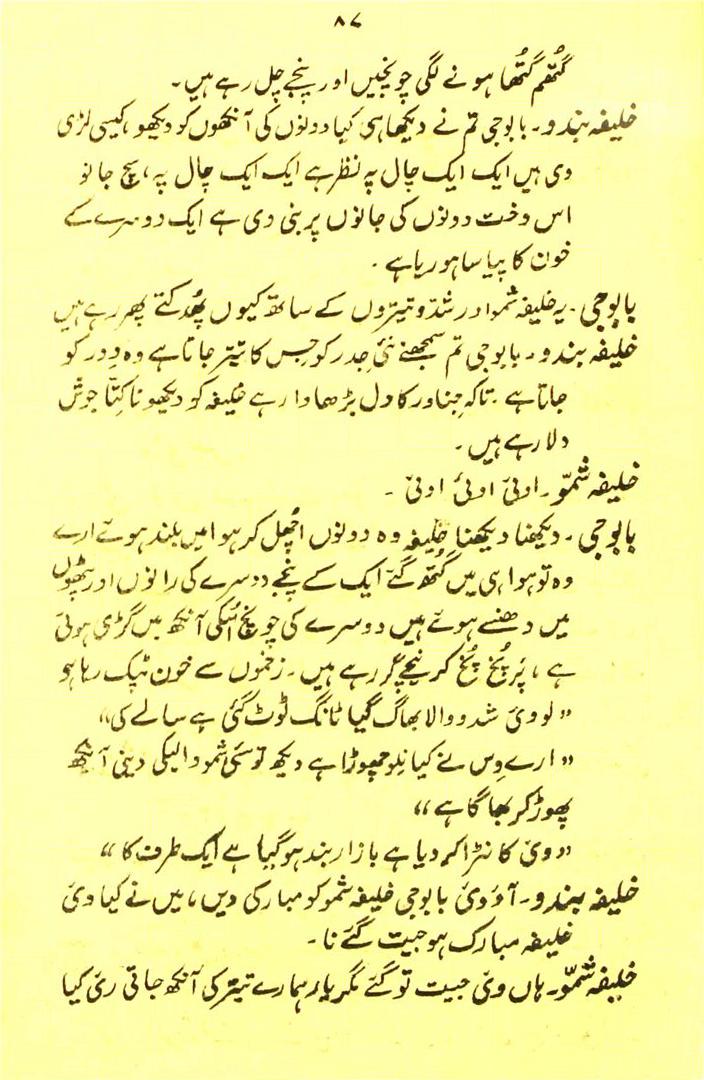 ۸۷
گتھم گتھا ہونے لگی چونچیں اور پنجے چل رہے ہیں۔
خلیفہ بندو۔ بابوجی تم نے دیکھا ہی کیا دونوں کی آنکھوں کو دیکھو، کیسی لڑی
وی ہیں ایک ایک چال پہ نظر ہے ایک ایک چال پہ، سچ جانو
اس وخت دونوں کی جانوں پر بنی وی ہے ایک دوسرے کے
خون کا پیاسا ہو ریا ہے۔
بابوجی۔ یہ خلیفہ شمو اور شدو تیتروں کے ساتھ کیوں پھدکتے پھر رہے ہیں
خلیفہ بندو۔ بابوجی تم سمجھنے نئی جدر کو جس کا تیتر جاتا ہے وہ ودر کو
جاتا ہے۔ تاکہ جناور کا دل بڑھاوا رہے خلیفہ کو دیکھو نا کتّا جوش
دلا رہے ہیں۔
خلیفہ شموّ۔ اوئی اوئی اوئی۔
بابوجی۔ دیکھنا دیکھنا خلیفہ وہ دونوں اچھل کر ہوا میں بلند ہوئے ارے
وہ تو ہوا ہی میں گتھ گئے ایک کے پنجے دوسرے کی رانوں اور پٹھوں
میں دھنسے ہوئے ہیں دوسرے کی چونچ اسکی آنکھ میں گڑی ہوئی
ہے، پر پُخ پُخ کر نیچے گر رہے ہیں۔ زخموں سے خون ٹپک رہا ہو
"لو وئ شدو والا بھاگ گیا ٹانگ ٹوٹ گئی ہے سالے کی"
"ارے وس نے کیا چھوڑا ہے دیکھ تو سئی شمو والیکی دینی آنکھ
پھوڑ کر بھاگا ہے"
"وئ کانڑا کر دیا ہے بازار بند ہو گیا ہے ایک طرف کا"
خلیفہ بندو۔ آؤ وئ بابوجی خلیفہ شمو کو مبارکی دیں، میں نے کیا وئ
خلیفہ مبارک ہو جیت گئے نا۔
خلیفہ شموّ۔ ہاں وئ جیت تو گئے مگر یار ہمارے تیتر کی آنکھ جاتی ری کیا